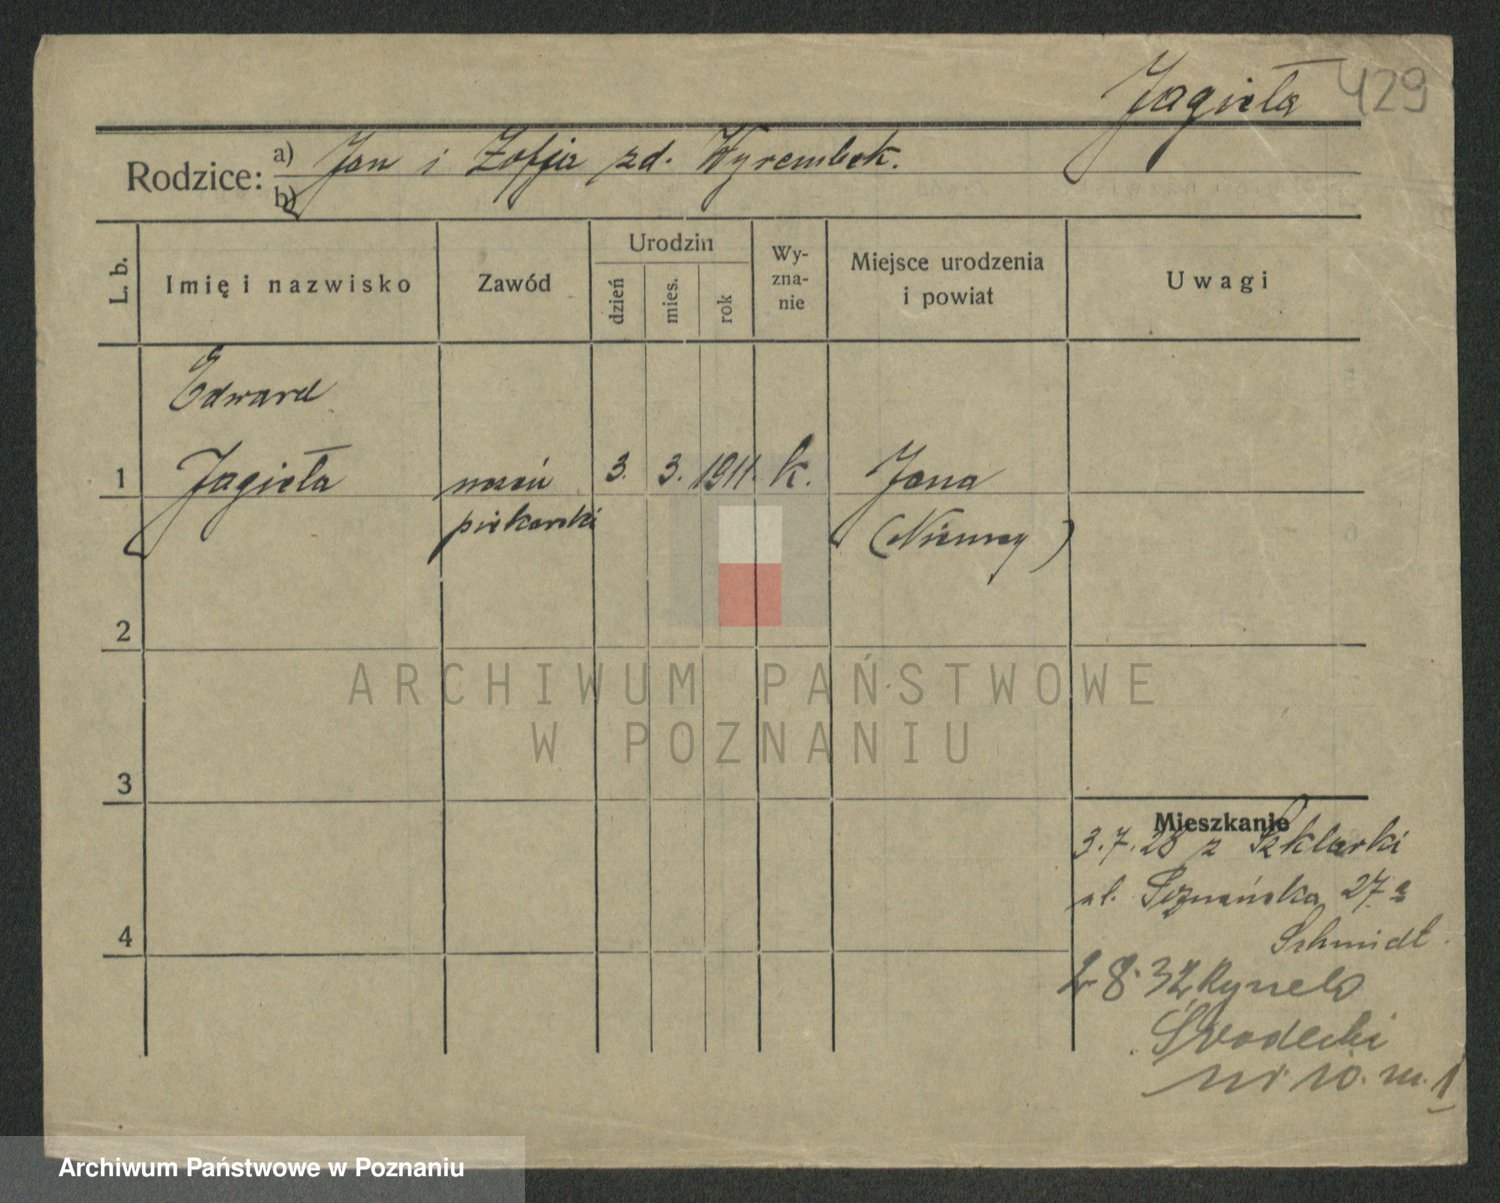 Jagieła 429
Rodzice: a) Jan i Zofja zd. Wyrembek.
b)
L. b.
Imię i nazwisko
Zawód
Urodzin
dzień
mies.
rok
Wy-
zna-
nie
Miejsce urodzenia
i powiat
Uwagi
Edward
1 Jagieła uczeń 3. 3. 1911. k. Jena
piekarski (Niemcy)
2
ARCHIWUM PAŃSTWOWE
W POZNANIU
3
Mieszkanie
3.7.28 z Szklarki
ul. Poznańska 27a
Schmidt.
2 8. 32 Rynek
Środecki
nr 10. m. 1
4
Archiwum Państwowe w Poznaniu